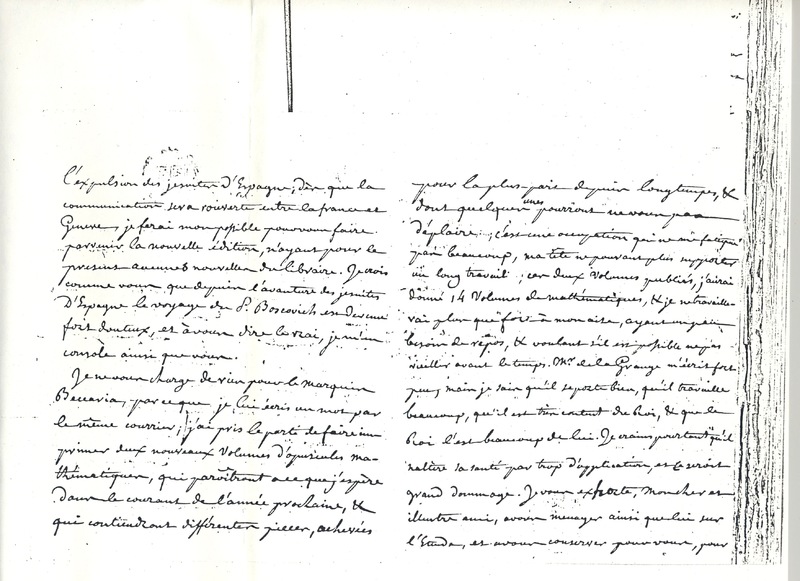 l'expulsion des jesuites d'Espagne; dès que la
communication sera rouverte entre la france et
Geneve, je ferai mon possible pour vous faire
parvenir la nouvelle édition, n'ayant pour le
present aucunes nouvelles du libraire. Je crois
comme vous que depuis l'avanture des jesuites
D'Espagne le voyage du P. Boscovich est devenu
fort douteux, et à vous dire le vrai, je m'en
console ainsi que vous.
Je ne vous charge de rien pour le marquis
Beccaria, parceque je lui écris un mot par
le même courrier; j'ai pris le parti de faire im
primer deux nouveaux Volumes d'opuscules ma-
thématiques, qui paroîtront à ce que j'espère
dans le courant de l'année prochaine, &
qui contiendront différentes pieces, achevées
pour la plus-part depuis longtemps, &
dont quelques unes pourront ne vous pas
déplaire; c'est une occupation qui ne me fatigue
pas beaucoup, ma tête ne pouvant plus supporter
un long travail; ces deux Volumes publiés, j'aurai
donné 14 Volumes de mathématiques, & je ne travaille-
rai plus que fort à mon aise, ayant un peu
besoin de repos, & voulant s'il est possible ne pas
vieiller avant le temps. Mr. de la Grange m'écrit fort
peu, mais je sais qu'il se porte bien, qu'il travaille
beaucoup, qu'il est très content du Roi, & que le
Roi l'est beaucoup de lui. Je crains pourtant qu'il
n'altère sa santé par trop d'application, et ce seroit
grand dommage. Je vous exhorte, mon cher et
illustre ami, à vous menager ainsi que lui sur
l'Etude, et à vous conserver pour vous, pour